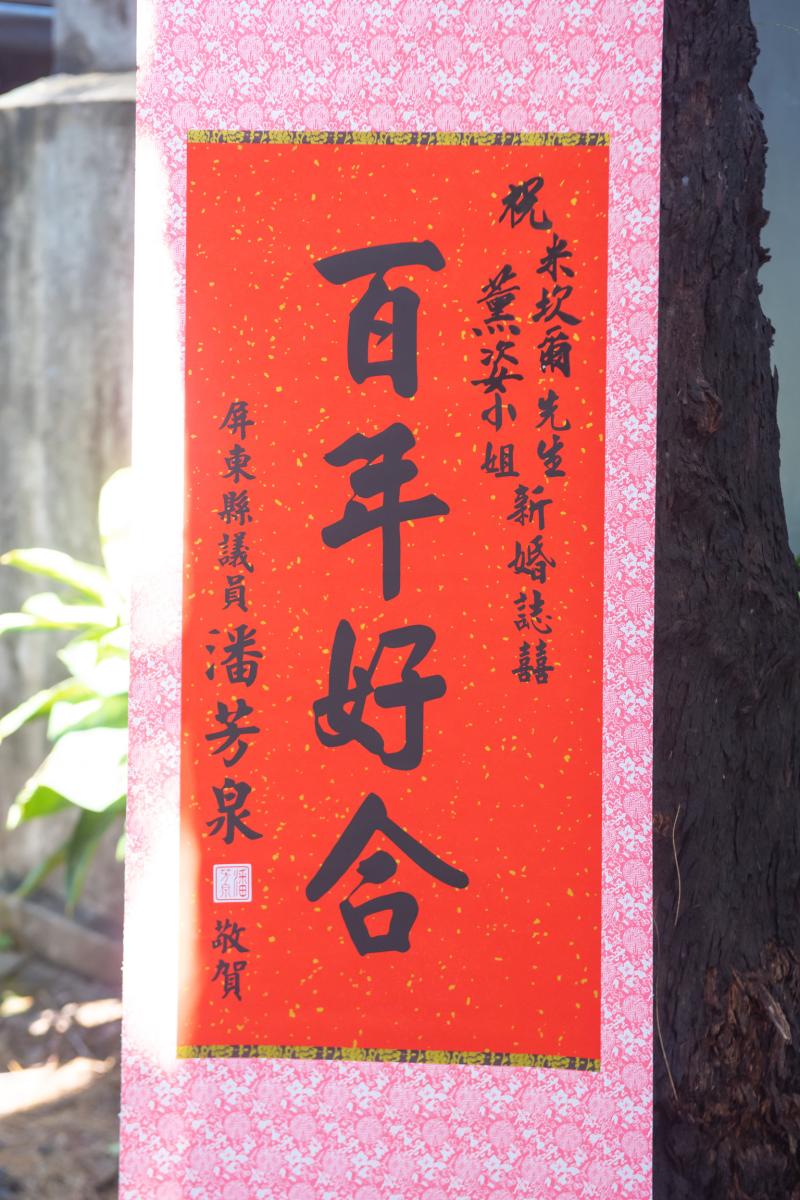 祝
米坎爾先生
薰姿小姐
新婚誌囍
百年好合
屏東縣議員潘芳泉
敬賀